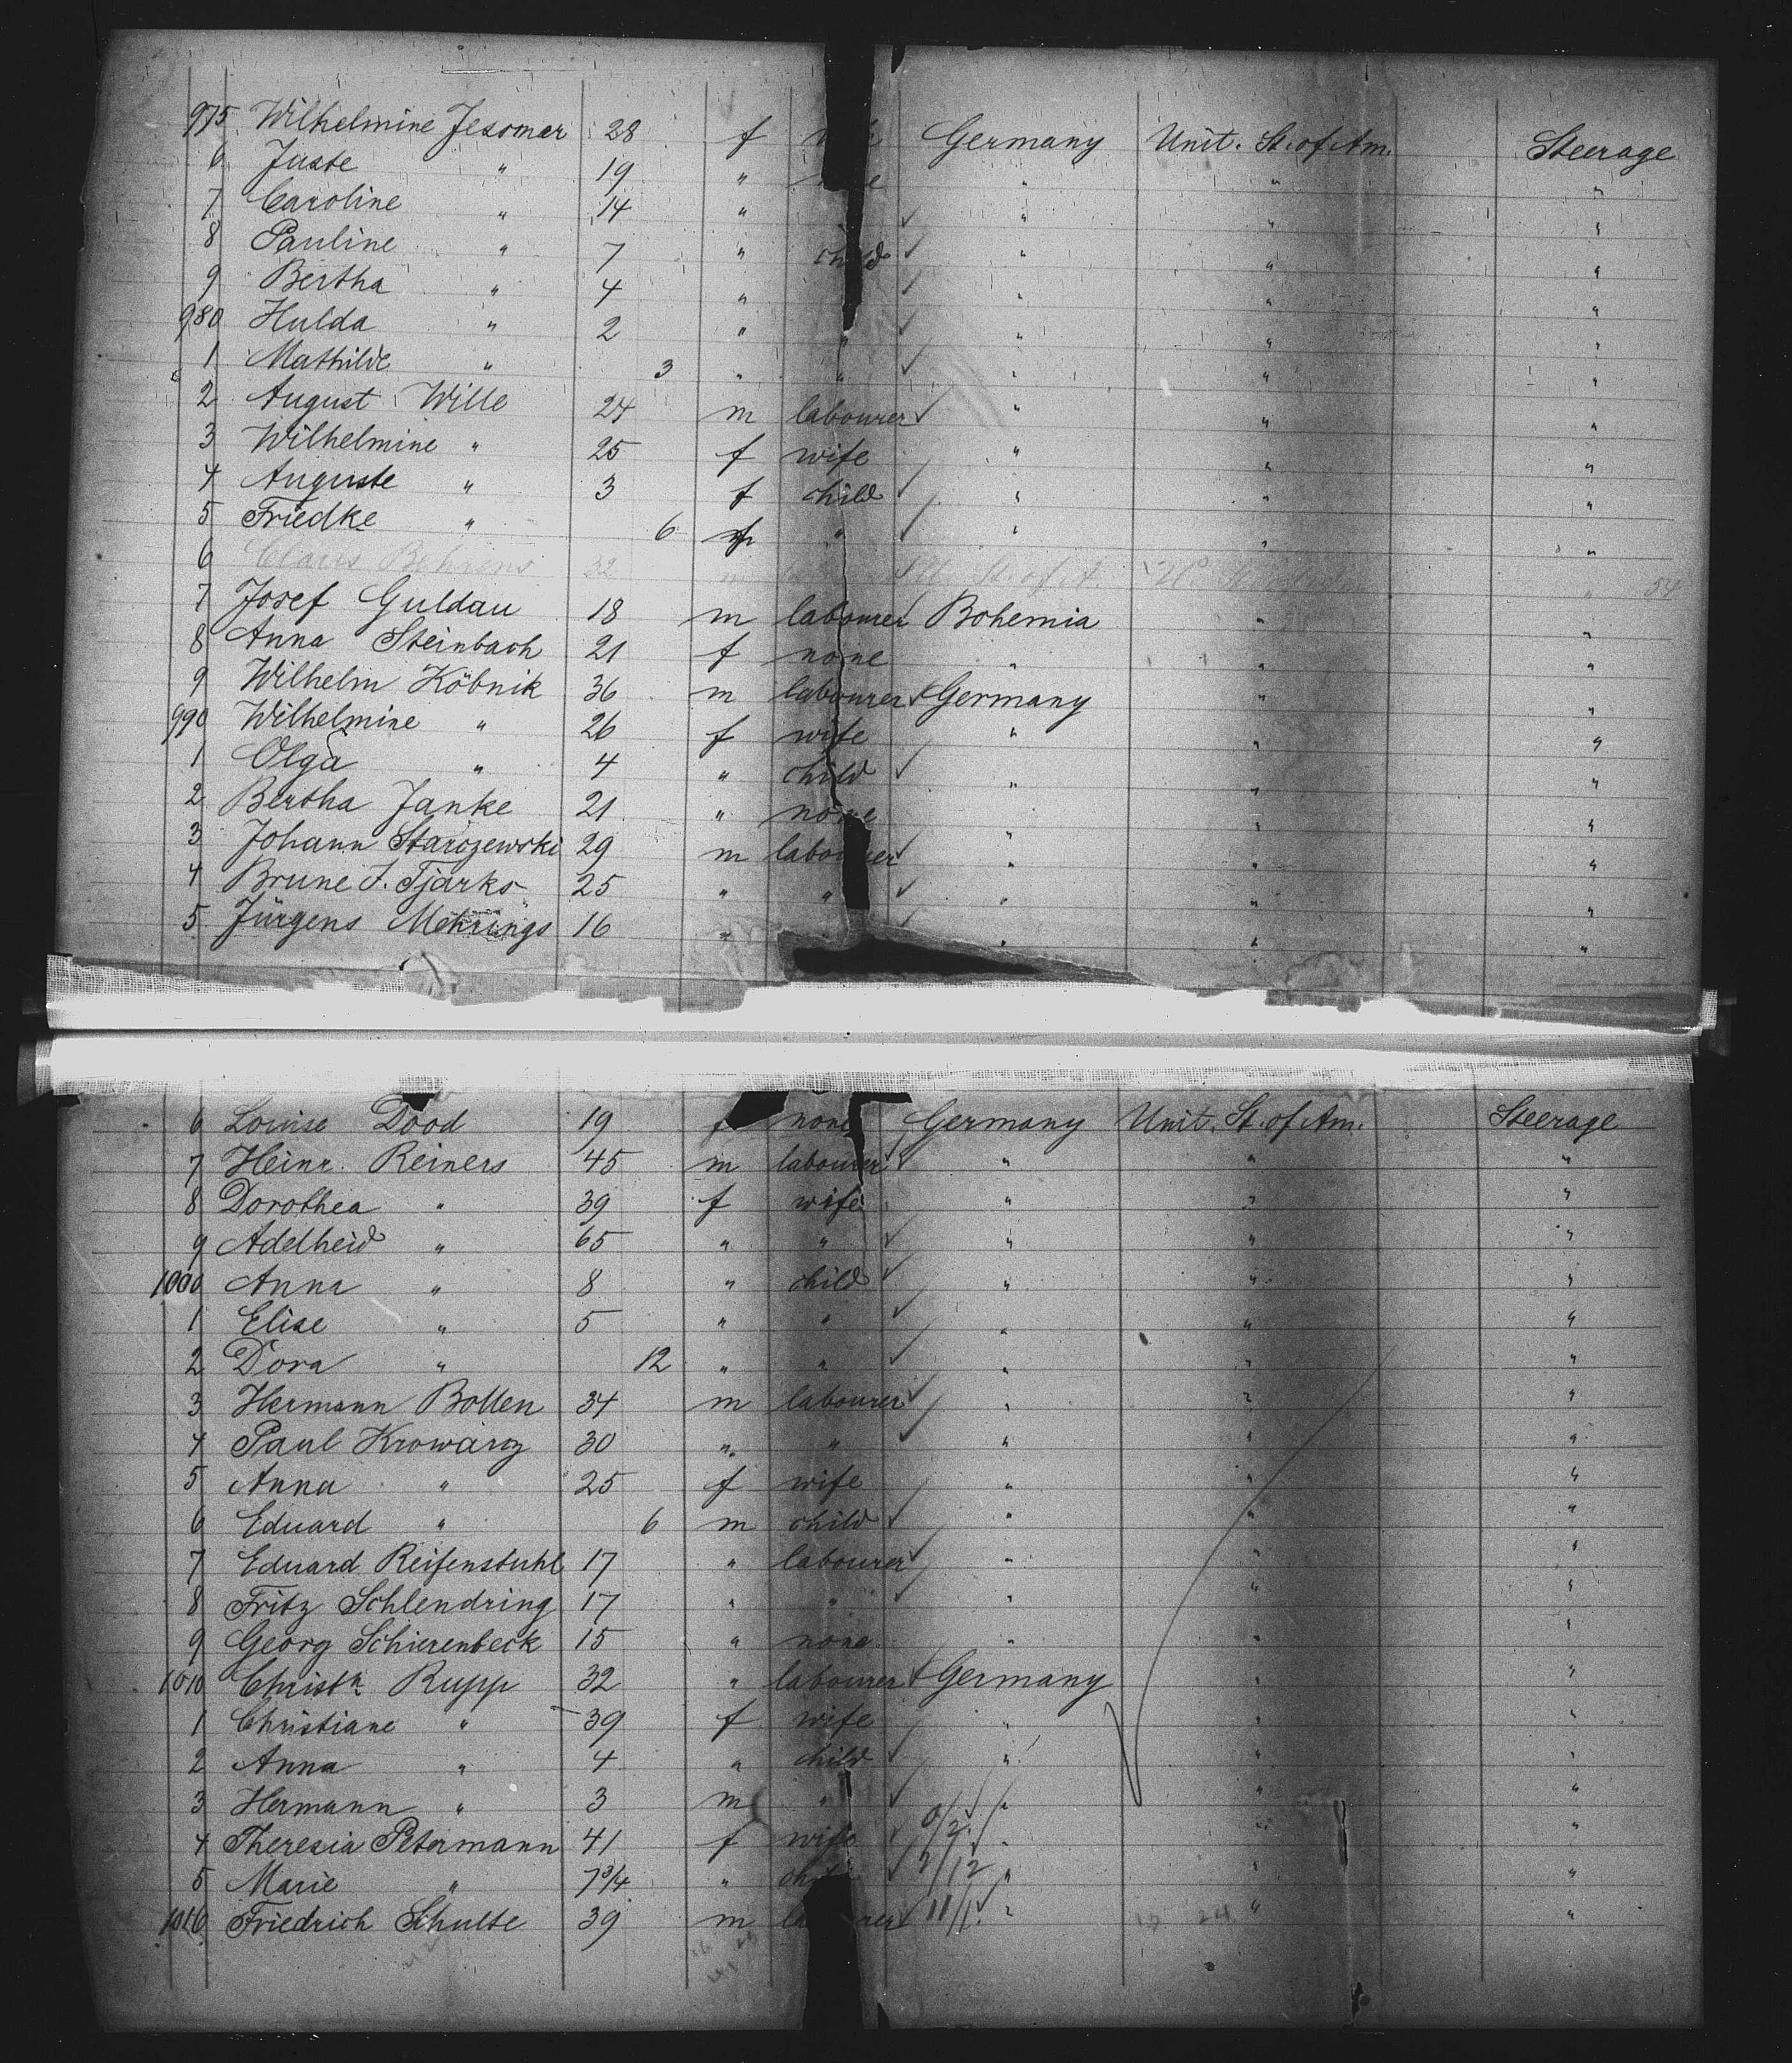 975 Wilhelmine Jesomer 28 f Germany Unit. St. of Am. Steerage
6 Juste " 19 " " " "
7 Caroline " 14 " " " "
8 Pauline " 7 " child " " "
9 Bertha " 4 " " " "
980 Hulda " 2 " " " " "
1 Mathilde " 3 " " " " "
2 August Wille 24 m labourer " " "
3 Wilhelmine " 25 f wife " " "
4 Auguste " 3 f child " " "
5 Friedke " 6 " " " "
6 Claus Behrens 32 m U. St. of A. " 54
7 Josef Guldau 18 m labourer Bohemia " "
8 Anna Steinbach 21 f none " " "
9 Wilhelm Köbnik 36 m labourer Germany " "
990 Wilhelmine " 26 f wife " " "
1 Olga " 4 " child " " "
2 Bertha Janke 21 " none " " "
3 Johann Starozewski 29 m labourer " " "
4 Brune J. Tjarks 25 " " " " "
5 Jürgens Mehrings 16 " " " "
6 Louise Dood 19 f none Germany Unit. St. of Am. Steerage
7 Heinr. Reiners 45 m labourer " " "
8 Dorothea " 39 f wife " " "
9 Adelheid " 65 " " " " "
1000 Anna " 8 " child " " "
1 Elise " 5 " " " " "
2 Dora " 12 " " " " "
3 Hermann Bollen 34 m labourer " " "
4 Paul Krowarz 30 " " " " "
5 Anna " 25 f wife " " "
6 Eduard " 6 m child " " "
7 Eduard Reifenstuhl 17 " labourer " " "
8 Fritz Schlendring 17 " " " " "
9 Georg Schierenbeck 15 " none " " "
1010 Christn Rupp 32 " labourer Germany " "
1 Christiane " 39 f wife " " "
2 Anna " 4 " child " " "
3 Hermann " 3 m " " " "
4 Theresia Petermann 41 f wife " " "
5 Marie " 7 3/4 " child 2/12 " " "
1016 Friedrich Schulte 39 m labourer 11/1. " " "